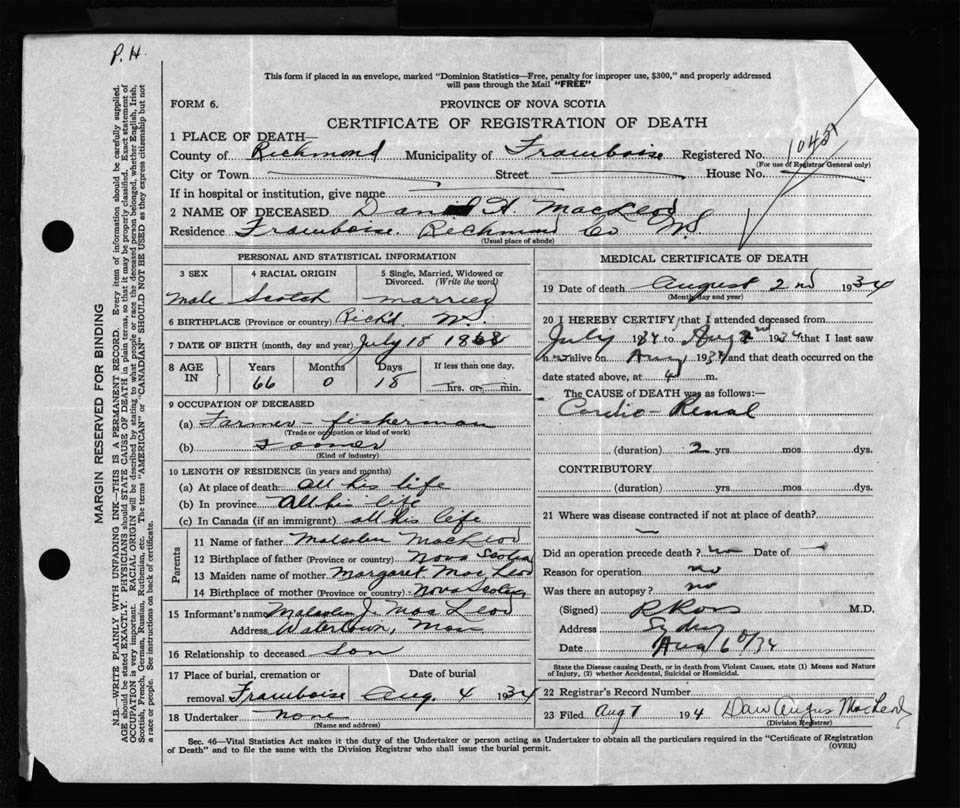 P. H.
This form if placed in an envelope, marked "Dominion Statistics—Free, penalty for improper use, $300," and properly addressed
will pass through the Mail "FREE"
FORM 6.
PROVINCE OF NOVA SCOTIA
CERTIFICATE OF REGISTRATION OF DEATH
1 PLACE OF DEATH—
County of Richmond Municipality of Framboise Registered No. 1045
(For use of Registrar General only)
City or Town Street House No.
If in hospital or institution, give name
2 NAME OF DECEASED H. MacLeod
Residence Framboise. Richmond Co N.S
(Usual place of abode)
PERSONAL AND STATISTICAL INFORMATION
3 SEX 4 RACIAL ORIGIN 5 Single, Married, Widowed or
Divorced. (Write the word)
male Scotch married
6 BIRTHPLACE (Province or country) Richd N.S.
7 DATE OF BIRTH (month, day and year) July 18
8 AGE IN Years Months Days If less than one day,
66 0 18 hrs. or min.
9 OCCUPATION OF DECEASED
(a) Farmer - fisherman
(Trade or occupation or kind of work)
(b)
(Kind of industry)
10 LENGTH OF RESIDENCE (in years and months)
(a) At place of death all his life
(b) In province All his life
(c) In Canada (if an immigrant) all his life
Parents
11 Name of father Malcolm MacLeod
12 Birthplace of father (Province or country) Nova Scotia
13 Maiden name of mother Margaret MacLeod
14 Birthplace of mother (Province or country) Nova Scotia
15 Informant's name Malcolm J. MacLeod
Address Watertown, Mass
16 Relationship to deceased Son
17 Place of burial, cremation or Date of burial
removal Framboise Aug. 4 1934
18 Undertaker none
(Name and address)
MEDICAL CERTIFICATE OF DEATH
19 Date of death August 2nd 1934
(Month, day and year)
20 I HEREBY CERTIFY that I attended deceased from
July 1934 to Aug 2nd 1934 that I last saw
h alive on Aug 1934 and that death occurred on the
date stated above, at 4 m.
The CAUSE of DEATH was as follows:
Cardio-Renal
(duration) 2 yrs. mos. dys.
CONTRIBUTORY
(duration) yrs. mos. dys.
21 Where was disease contracted if not at place of death?
Did an operation precede death? no Date of
Reason for operation no
Was there an autopsy? no
(Signed) M.D.
Address Sydney
Date Aug 6/34
State the Disease causing Death, or in death from Violent Causes, state (1) Means and Nature
of Injury, (2) whether Accidental, Suicidal or Homicidal.
22 Registrar's Record Number
23 Filed Aug 7 19 4 Dan Angus MacLeod
(Division Registrar)
Sec. 46—Vital Statistics Act makes it the duty of the Undertaker or person acting as Undertaker to obtain all the particulars required in the "Certificate of Registration
of Death" and to file the same with the Division Registrar who shall issue the burial permit.
(OVER)
MARGIN RESERVED FOR BINDING
N.B.—WRITE PLAINLY WITH UNFADING INK—THIS IS A PERMANENT RECORD. Every item of information should be carefully supplied.
AGE should be stated EXACTLY. PHYSICIANS should STATE CAUSE OF DEATH in plain terms, so that it may be properly classified. Exact statement of
OCCUPATION is very important. RACIAL ORIGIN will be described by stating to what people or race the deceased person belonged, whether English, Irish,
Scottish, French, German, Russian, Ruthenian, etc. The terms "AMERICAN" or "CANADIAN" SHOULD NOT BE USED as they express citizenship but not
a race or people. See instructions on back of certificate.